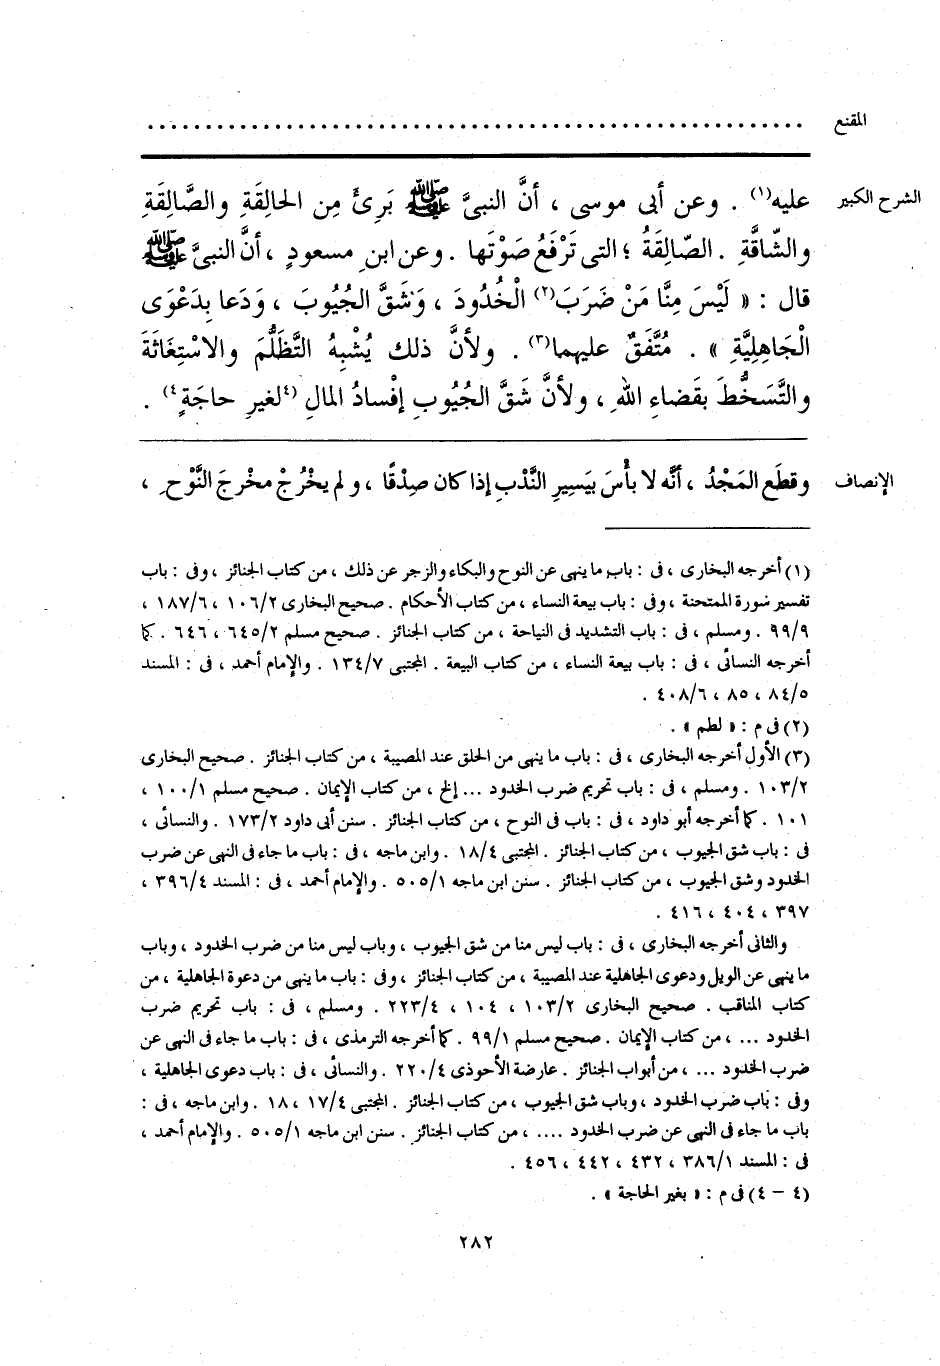 المقنع ..........................................................
الشرح الكبير عليه(١) . وعن أبى موسى ، أنَّ النبىَّ ﷺ بَرِئَ مِن الحالِقَةِ والصَّالِقَةِ
والشّاقَّةِ . الصّالِقَةُ ؛ التى تَرْفَعُ صَوْتَها . وعن ابنِ مسعودٍ ، أنَّ النبىَّ ﷺ
قال : « لَيْسَ مِنَّا مَنْ ضَرَبَ(٢) الْخُدُودَ ، وَشَقَّ الجُيُوبَ ، وَدَعا بِدَعْوَى
الْجَاهِلِيَّةِ » . مُتَّفَقٌ عليهما(٣) . ولأنَّ ذلك يُشْبِهُ التَّظَلُّمَ والاسْتِغَاثَةَ
والتَّسَخُّطَ بقَضاءِ اللهِ ، ولأنَّ شَقَّ الجُيُوبِ إفْسادُ المالِ (٤لغيرِ حاجَةٍ٤) .
الإنصاف وقطَع المَجْدُ ، أنَّه لا بأْسَ بيَسِيرِ النَّدْبِ إذا كان صِدْقًا ، ولم يخْرُجْ مخْرجَ النَّوْحِ ،
(١) أخرجه البخارى ، فى : باب ما ينهى عن النوح والبكاء والزجر عن ذلك ، من كتاب الجنائز ، وفى : باب
تفسير سورة الممتحنة ، وفى : باب بيعة النساء ، من كتاب الأحكام . صحيح البخارى ١٠٦/٢ ، ١٨٧/٦ ،
٩٩/٩ . ومسلم ، فى : باب التشديد فى النياحة ، من كتاب الجنائز . صحيح مسلم ٦٤٥/٢ ، ٦٤٦ . كما
أخرجه النسائى ، فى : باب بيعة النساء ، من كتاب البيعة . المجتبى ١٣٤/٧ . والإمام أحمد ، فى : المسند
٨٤/٥ ، ٨٥ ، ٤٠٨/٦ .
(٢) فى م : « لطم » .
(٣) الأول أخرجه البخارى ، فى : باب ما ينهى من الحلق عند المصيبة ، من كتاب الجنائز . صحيح البخارى
١٠٣/٢ . ومسلم ، فى : باب تحريم ضرب الخدود ... إلخ ، من كتاب الإيمان . صحيح مسلم ١٠٠/١ ،
١٠١ . كما أخرجه أبو داود ، فى : باب فى النوح ، من كتاب الجنائز . سنن أبى داود ١٧٣/٢ . والنسائى ،
فى : باب شق الجيوب ، من كتاب الجنائز . المجتبى ١٨/٤ . وابن ماجه ، فى : باب ما جاء فى النهى عن ضرب
الخدود وشق الجيوب ، من كتاب الجنائز . سنن ابن ماجه ٥٠٥/١ . والإمام أحمد ، فى : المسند ٣٩٦/٤ ،
٣٩٧ ، ٤٠٤ ، ٤١٦ .
والثانى أخرجه البخارى ، فى : باب ليس منا من شق الجيوب ، وباب ليس منا من ضرب الخدود ، وباب
ما ينهى عن الويل ودعوى الجاهلية عند المصيبة ، من كتاب الجنائز ، وفى : باب ما ينهى من دعوة الجاهلية ، من
كتاب المناقب . صحيح البخارى ١٠٣/٢ ، ١٠٤ ، ٢٢٣/٤ . ومسلم ، فى : باب تحريم ضرب
الخدود ... ، من كتاب الإيمان . صحيح مسلم ٩٩/١ . كما أخرجه الترمذى ، فى : باب ما جاء فى النهى عن
ضرب الخدود ... ، من أبواب الجنائز . عارضة الأحوذى ٢٢٠/٤ . والنسائى ، فى : باب دعوى الجاهلية ،
وفى : باب ضرب الخدود ، وباب شق الجيوب ، من كتاب الجنائز . المجتبى ١٧/٤ ، ١٨ . وابن ماجه ، فى :
باب ما جاء فى النهى عن ضرب الخدود .... ، من كتاب الجنائز . سنن ابن ماجه ٥٠٥/١ . والإمام أحمد ،
فى : المسند ٣٨٦/١ ، ٤٣٢ ، ٤٤٢ ، ٤٥٦ .
(٤ - ٤) فى م : « بغير الحاجة » .
٢٨٢